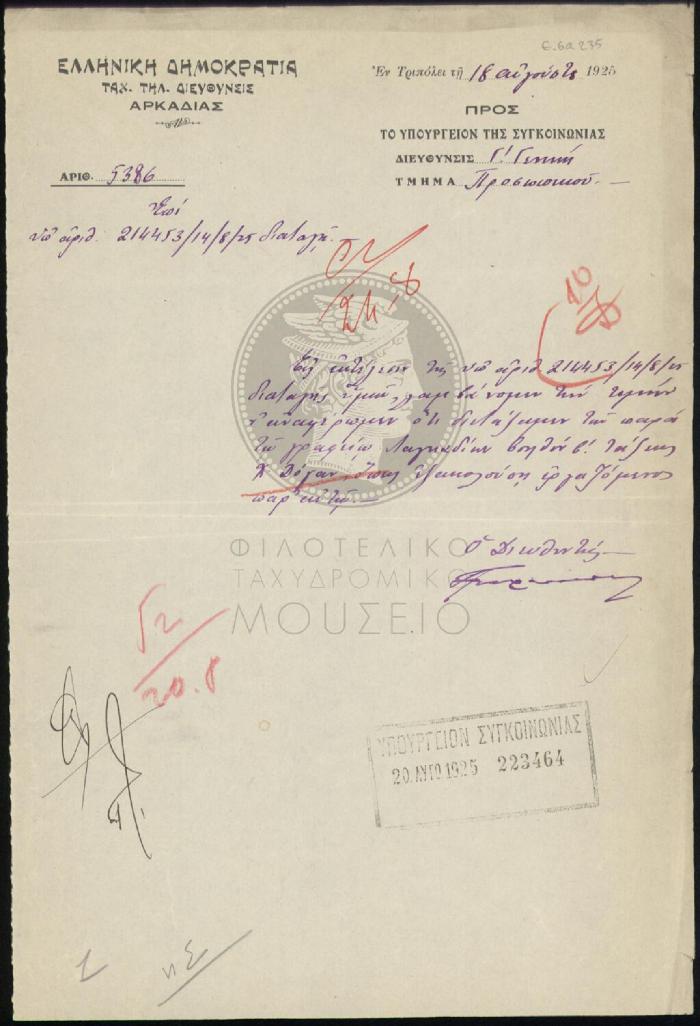 6.6α 235
ΕΛΛΗΝΙΚΗ ΔΗΜΟΚΡΑΤΙΑ
ΤΑΧ. ΤΗΛ. ΔΙΕΥΘΥΝΣΙΣ
ΑΡΚΑΔΙΑΣ
Ἐν Τριπόλει τῇ 18 αὐγούστου 1925
ΠΡΟΣ
ΤΟ ΥΠΟΥΡΓΕΙΟΝ ΤΗΣ ΣΥΓΚΟΙΝΩΝΙΑΣ
ΔΙΕΥΘΥΝΣΙΣ Γ! Γενική
ΤΜΗΜΑ Προσωπικοῦ.—
ΑΡΙΘ. 5386
Ἐπί
ὑπ' ἀριθ. 214453/14/8/25 διαταγῆς.
10/8
Εἰς ἐκτέλεσιν τῆς ὑπ' ἀριθ. 214453/14/8/25
διαταγῆς ὑμῶν, λαμβάνομεν τήν τιμήν
ν' ἀναφέρωμεν ὅτι διετάξαμεν τόν παρά
τῷ γραφείῳ Λαγκαδίων βοηθόν β! τάξεως
ὅπως ἐξακολουθήσῃ ἐργαζόμενος
παρ' αὐτῷ.—
Ὁ Διευθυντής
ΦΙΛΟΤΕΛΙΚΟ
ΤΑΧΥΔΡΟΜΙΚΟ
ΜΟΥΣΕΙΟ
52
20.8
ΥΠΟΥΡΓΕΙΟΝ ΣΥΓΚΟΙΝΩΝΙΑΣ
20 ΑΥΓΟ 1925 223464